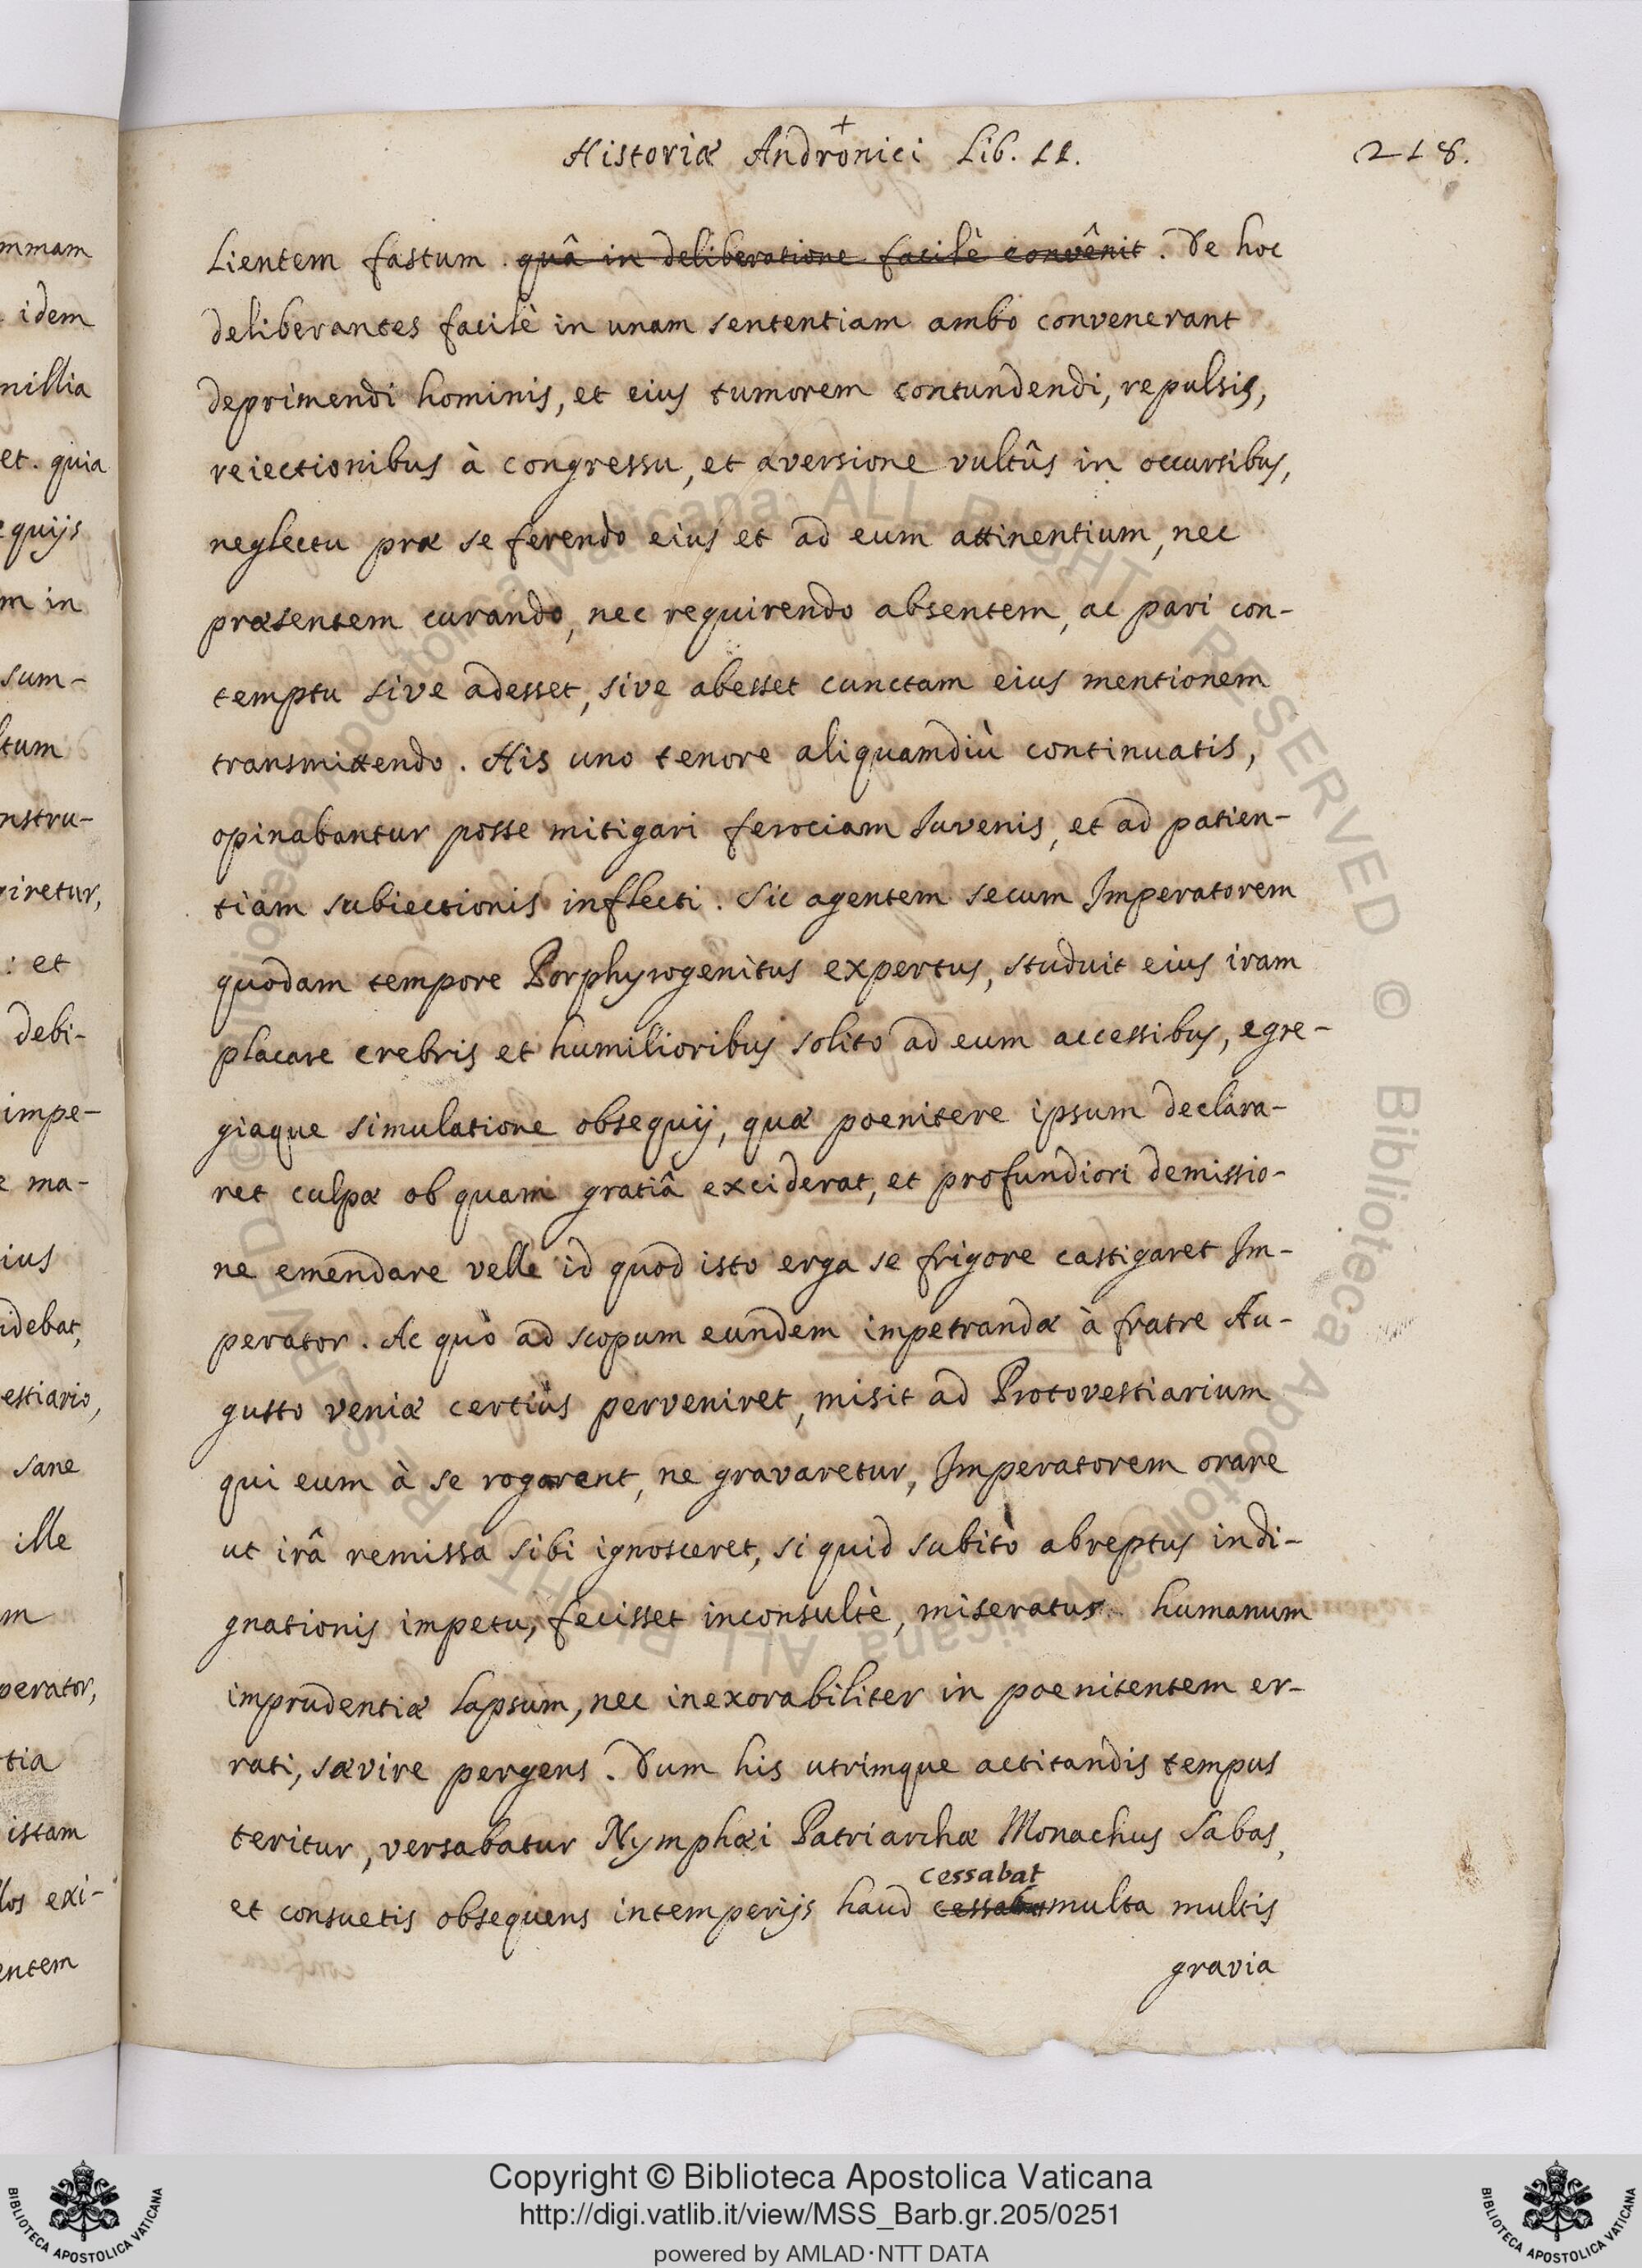 mmam
idem
millia
et. quia
equijs
m in
sum-
tum
nstru-
iretur,
: et
debi-
impe-
e ma-
ius
idebat,
estiario,
sane
ille
m
perator,
tia
istam
los exi-
entem
+
Historiæ Andronici Lib. 11.
218.
lientem fastum. quâ in deliberatione facilè convênit. De hoc
deliberantes facilè in unam sententiam ambo convenerant
deprimendi hominis, et eius tumorem contundendi, repulsis,
reiectionibus à congressu, et aversione vultûs in occursibus,
neglectu præ se ferendo eius et ad eum attinentium, nec
præsentem curando, nec requirendo absentem, ac pari con-
temptu sive adesset, sive abesset cunctam eius mentionem
transmittendo. His uno tenore aliquamdiù continuatis,
opinabantur posse mitigari ferociam Iuvenis, et ad patien-
tiam subiectionis inflecti. Sic agentem secum Imperatorem
quodam tempore Porphyrogenitus expertus, studuit eius iram
placare crebris et humilioribus solito ad eum accessibus, egre-
giaque simulatione obsequij, quæ poenitere ipsum declara-
ret culpæ ob quam gratiâ exciderat, et profundiori demissio-
ne emendare velle id quod isto erga se frigore castigaret Im-
perator. Ac quò ad scopum eundem impetrandæ à fratre Au-
gusto veniæ certiùs perveniret, misit ad Protovestiarium
qui eum à se rogarent, ne gravaretur, Imperatorem orare
ut irâ remissa sibi ignosceret, si quid subitò abreptus indi-
gnationis impetu, fecisset inconsultè, miseratus humanum
imprudentiæ lapsum, nec inexorabiliter in poenitentem er-
rati, sævire pergens. Dum his utrimque actitandis tempus
teritur, versabatur Nymphæi Patriarchæ Monachus Sabas,
cessabat
et consuetis obsequens intemperijs haud cessabat multa multis
gravia
Copyright © Biblioteca Apostolica Vaticana
http://digi.vatlib.it/view/MSS_Barb.gr.205/0251
powered by AMLAD·NTT DATA
BIBLIOTECA APOSTOLICA VATICANA
BIBLIOTECA APOSTOLICA VATICANA
© Biblioteca Apostolica Vaticana ALL RIGHTS RESERVED © Biblioteca Apostolica Vaticana ALL RIGHTS RESERVED